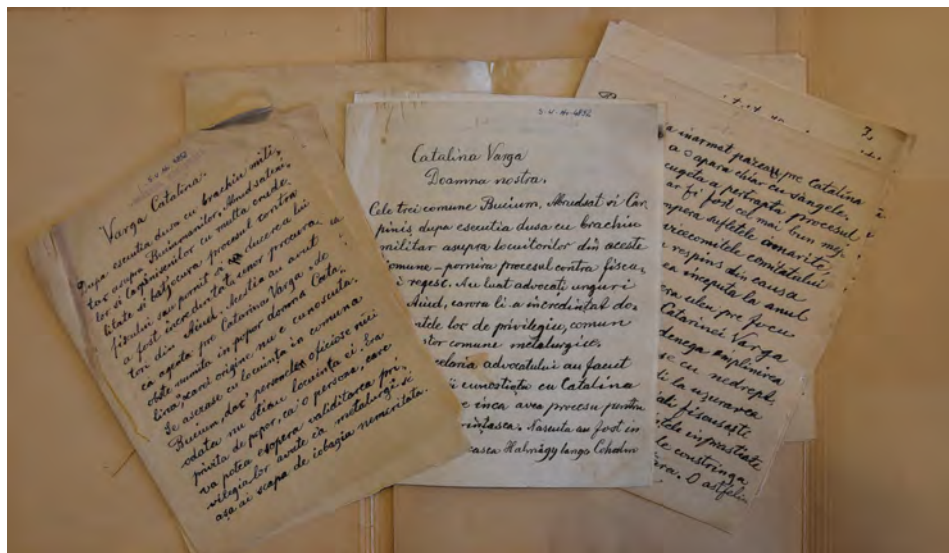 Varga Catalina.
Dupa escutia dusa cu brachiu mili,
tar asupra Buciumanilor, Abrudsateni,
lor si Carpinisenilor cu multa crude,
litate si batjocura procesul contra
fiscului sau pornit si ducerea lui
a fost incredintată unor procura
tori din Aiud. Acestia au avut ca
ca agenta pre Catarina Varga de
obste numita in popor domna Cata,
lina, carei origine nu e cunoscuta.
Se asezase cu locuinta in comuna
Bucium, das' personele oficiose nici
odata nu stiau locuinta ei. Era
privita de popor, ca o persona, care
va potea esopera validitarea pri,
vilegialor avute ca metalurgi-si
asa ai scapa de iobagia nemeritata.
S-V-Nr-4892
Catalina Varga
Doamna nostra.
Cele trei comune Bucium, Abrudsat si Car
pinis, dupa escutia dusa cu brachiu
militar asupra locuitorilor din aceste
comune - pornira procesul contra fiscu,
i regesc. Au luat advocați unguri
Aiud, carora li a incredintat do,
ntele lor de privilegiu, comun
stor comune metalurgice.
celaria advocatului au facut
ii cunostiața cu Catalina
e inca avea procesu pentru
rințasca. Nascuta au fost in
easca Halmágy langa Cohalm
7.
a inarmat pazeau pre Catalina
a o apara chiar cu sângele.
cugeta a pertrapta procesul
ar fi fost cel mai bun mij
mpera sufletele amarite,
vicecomitele comitatului
respins din caussa
ea inceputa la anul
era uleu pre focu
Catarinei Varga
denega implinirea
se cu nedrept
di la usurarea
ali fiscusește
tele inprastiate
le constringa
ara. O astfeliu